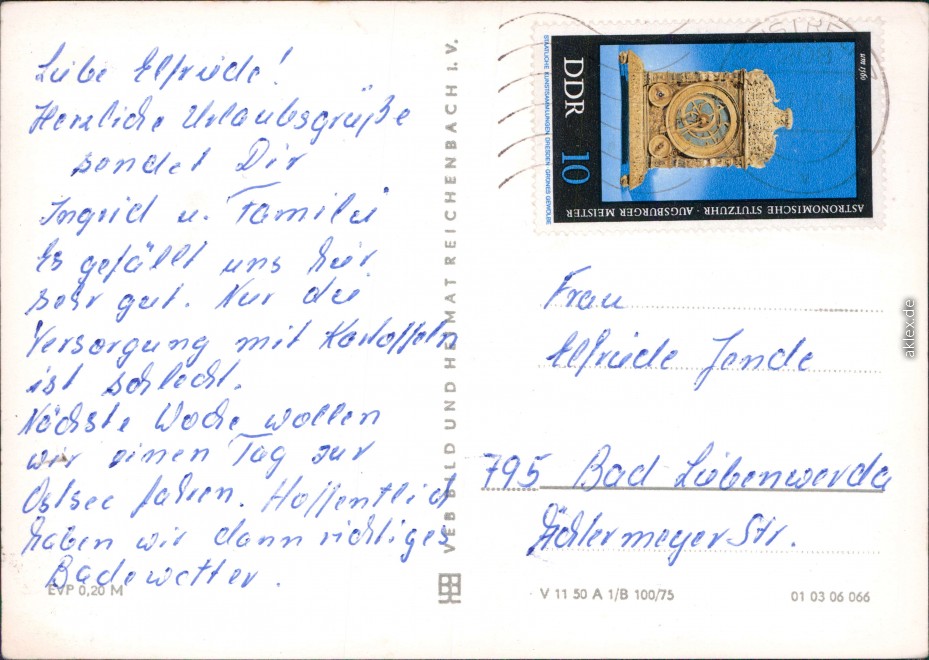 Liebe Elfriede!
Herzliche Urlaubsgrüße
sendet Dir
Ingrid u. Familie
Es gefällt uns hier
sehr gut. Nur die
Versorgung mit Kartoffeln
ist schlecht.
Nächste Woche wollen
wir einen Tag zur
Ostsee fahren. Hoffentlich
haben wir dann richtiges
Badewetter.
EVP 0,20 M
VEB BILD UND HEIMAT REICHENBACH I. V.
STAATLICHE KUNSTSAMMLUNGEN DRESDEN GRÜNES GEWÖLBE
DDR 10
um 1560
ASTRONOMISCHE STUTZUHR · AUGSBURGER MEISTER
Frau
Elfriede Jende
795 Bad Liebenwerda
Str.
V 11 50 A 1/B 100/75
01 03 06 066
aklex.de